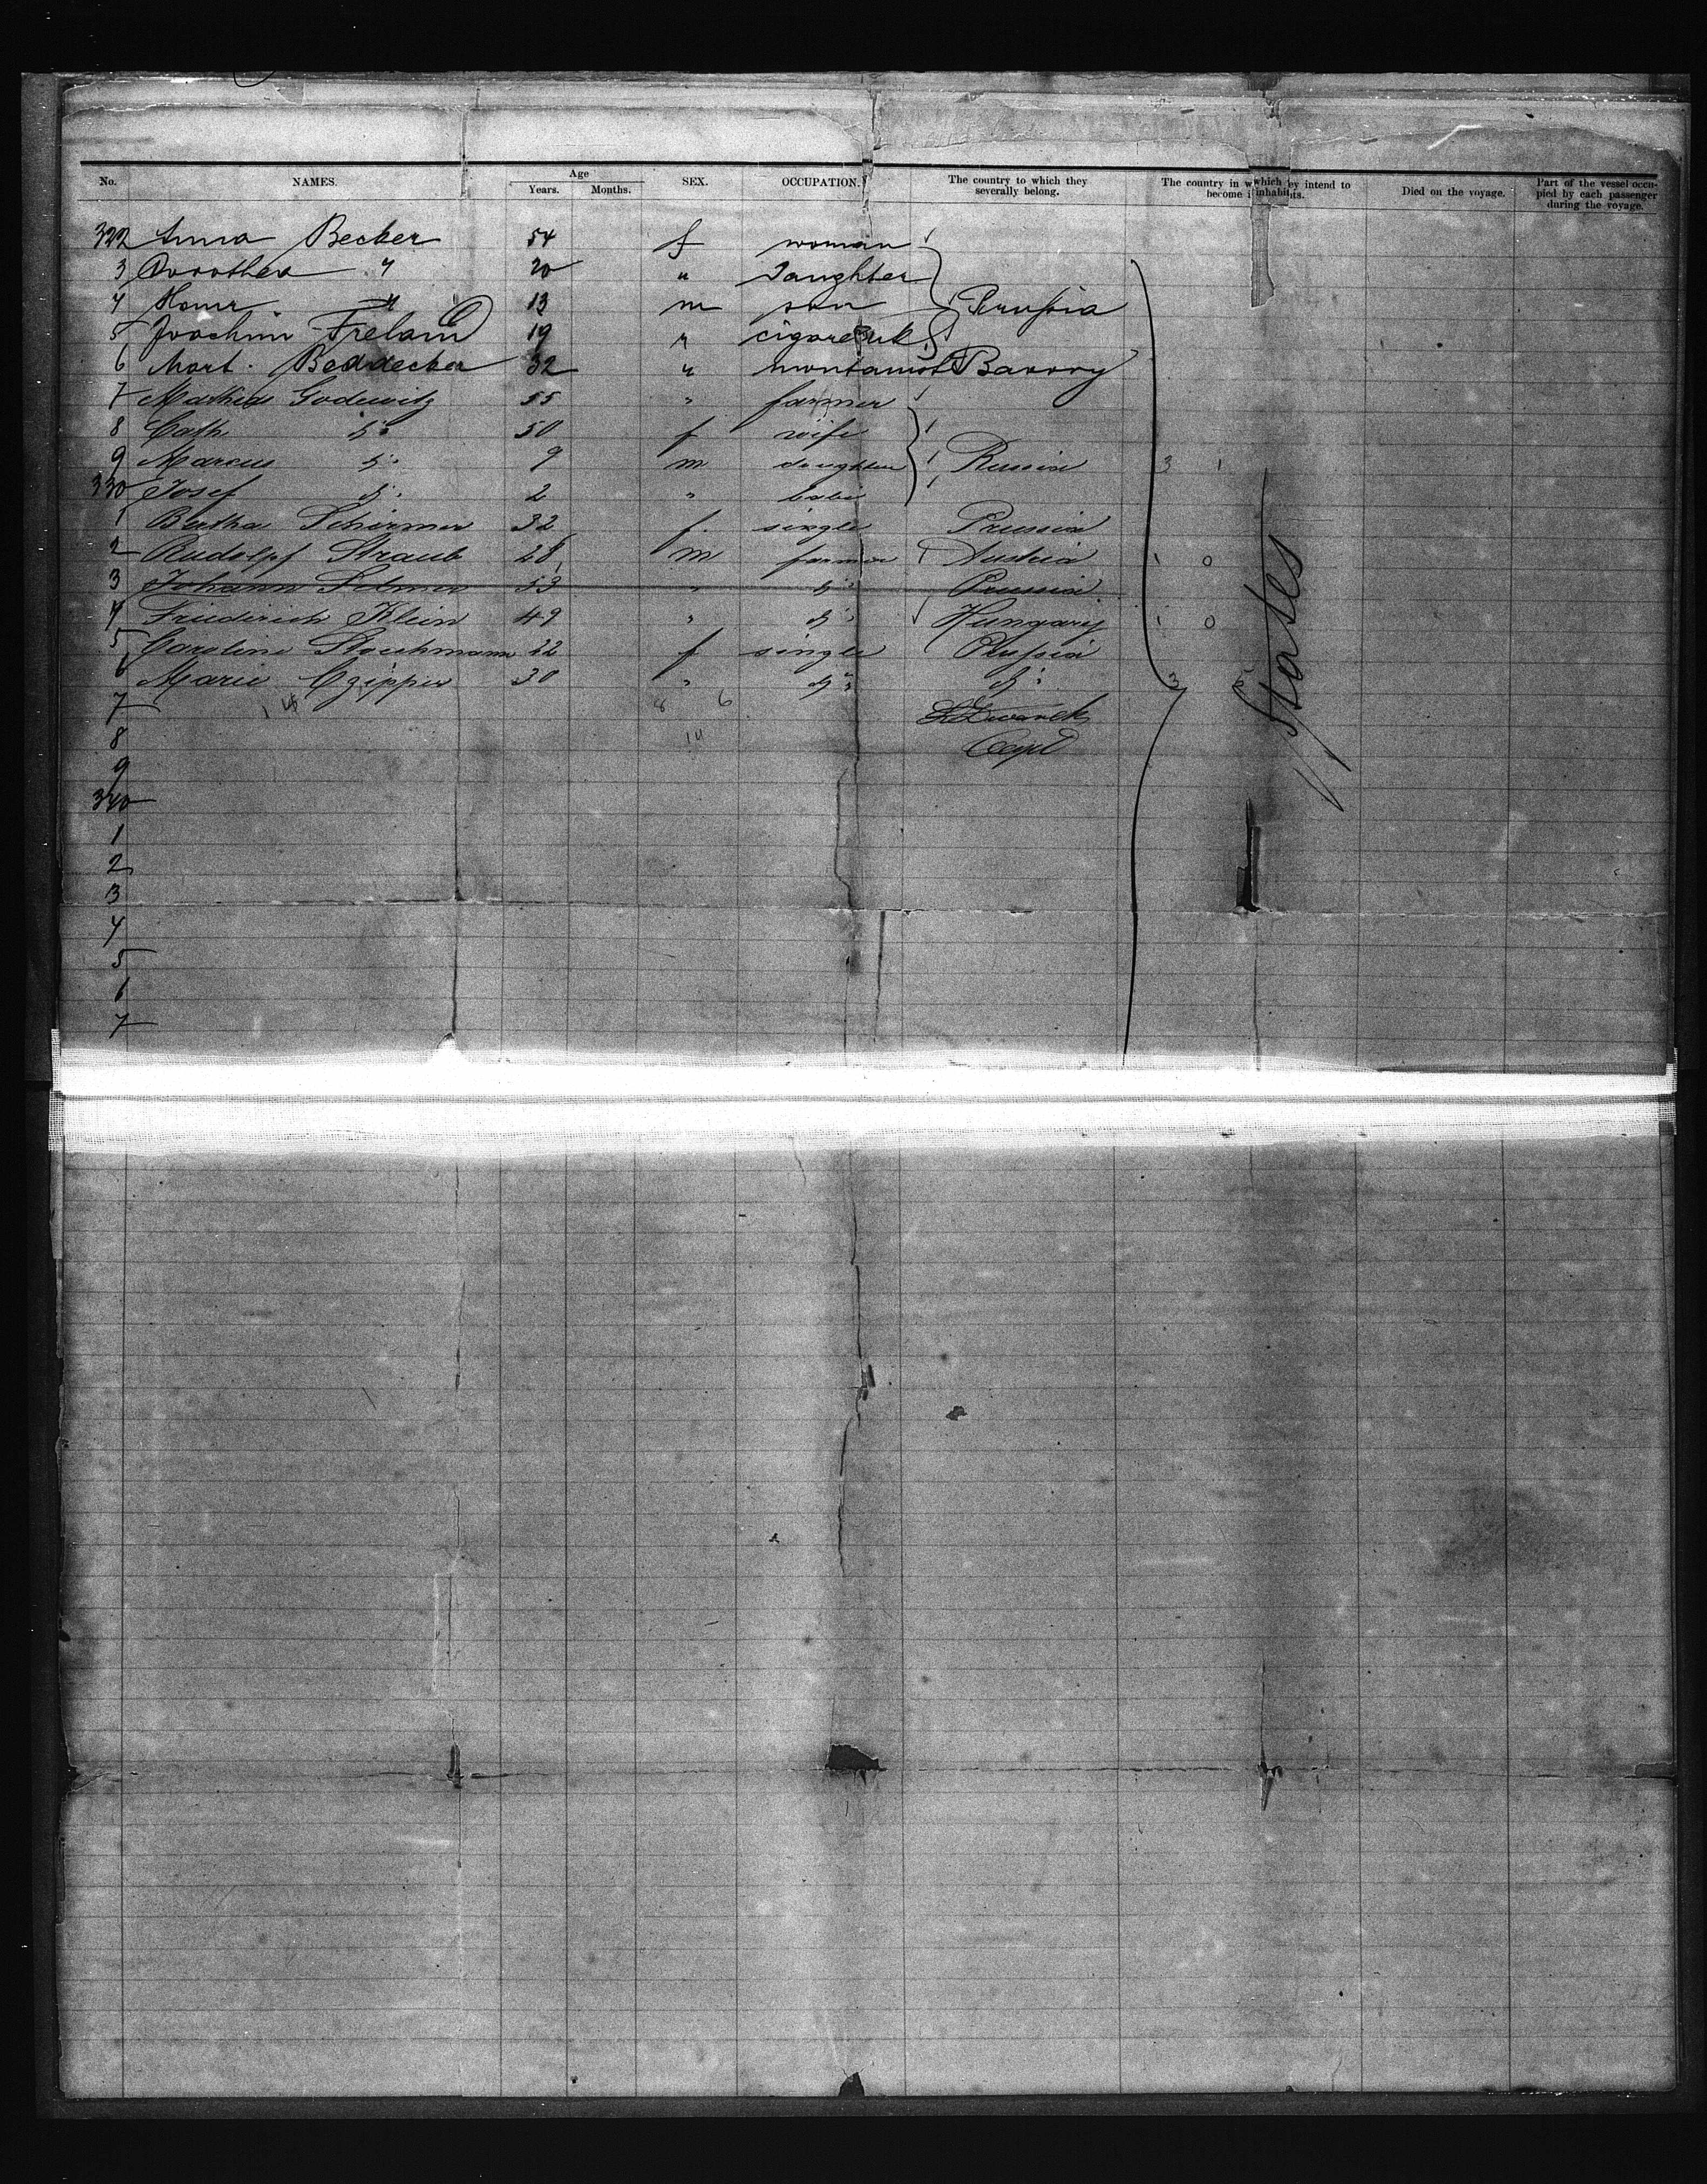 No. NAMES. Age Years. Months. SEX. OCCUPATION. The country to which they severally belong. The country in which they intend to become inhabitants. Died on the voyage. Part of the vessel occupied by each passenger during the voyage.
322 Anna Becker 54 f woman
3 Dorothea " 20 " Daughter
4 " 13 m son Prussia
5 Joachim 19 "
6 32 "
7 55 " farmer
8 Cath. do 50 f wife
9 Marcus do. 9 m daughter Russia 3 1
330 Josef do. 2 "
1 Bertha Schirmer 32 f. single Prussia
2 Rudolpf Straub 28 m farmer Austria 1 0
3 Johann 53 " do Prussia
4 Friederich Klein 49 " do Hungary 1 0
5 Caroline 22 f single Prussia
6 Marie 30 " do do
States
7 14 8 6
8 14 Capt
9
340
1
2
3
4
5
6
7